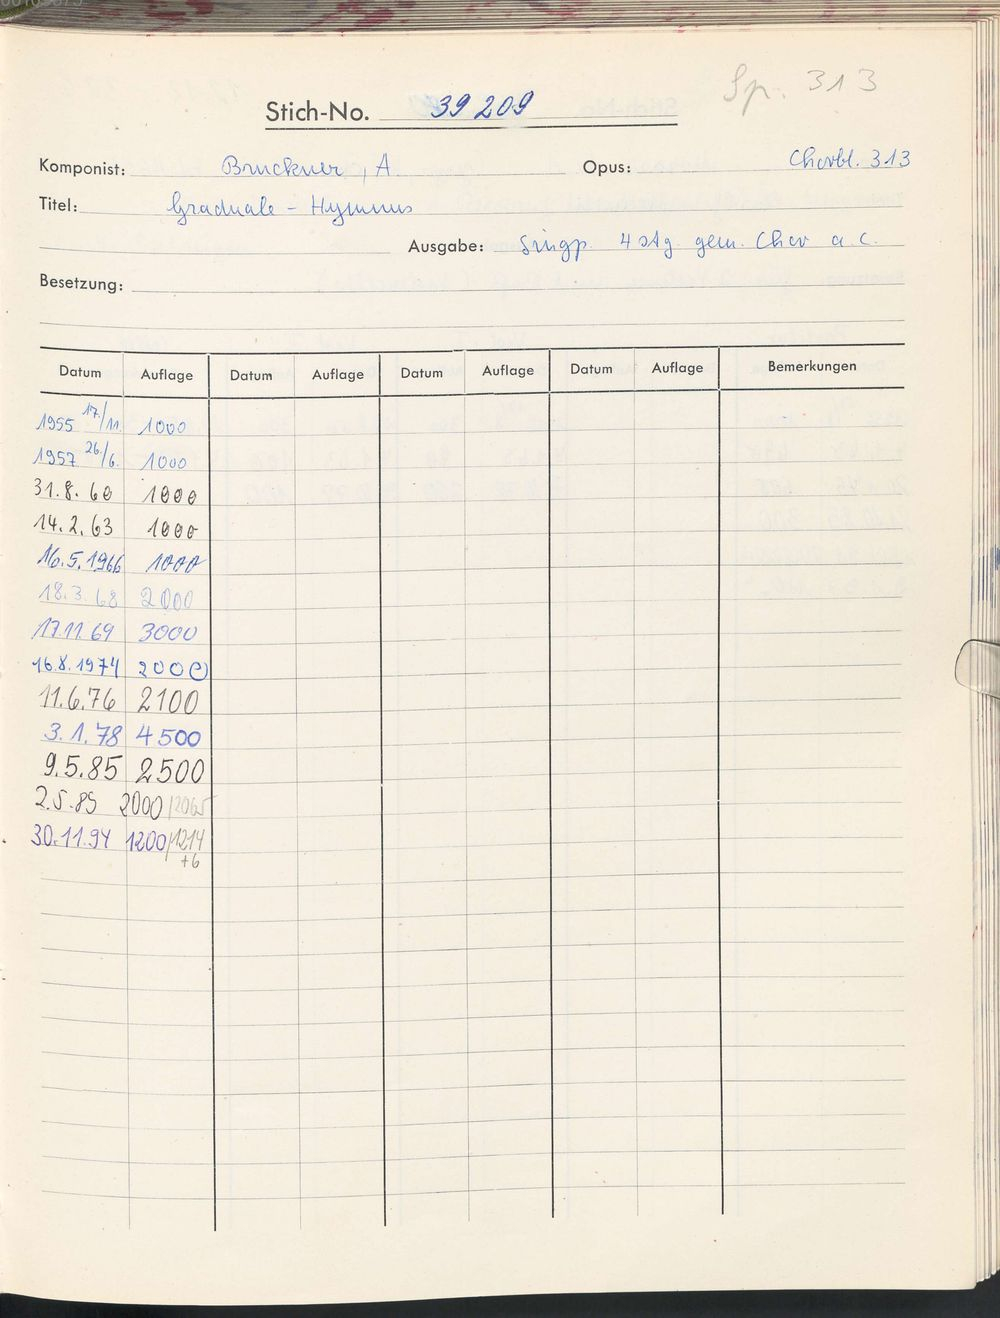 Sp. 313
Stich-No. 39209
Komponist: Bruckner, A Opus: Chorbl. 313
Titel: Graduale - Hymnus
Ausgabe: Singp. 4 stg. gem. Chor a. c.
Besetzung:
Datum Auflage Datum Auflage Datum Auflage Datum Auflage Bemerkungen
1955 17./11. 1000
1957 26./6. 1000
31.8.60 1000
14.2.63 1000
16.5.1966 1000
18.3.68 2000
17.11.69 3000
16.8.1974 2000
11.6.76 2100
3.1.78 4500
9.5.85 2500
2.5.89 2000/2065
30.11.94 1200/1214
+6